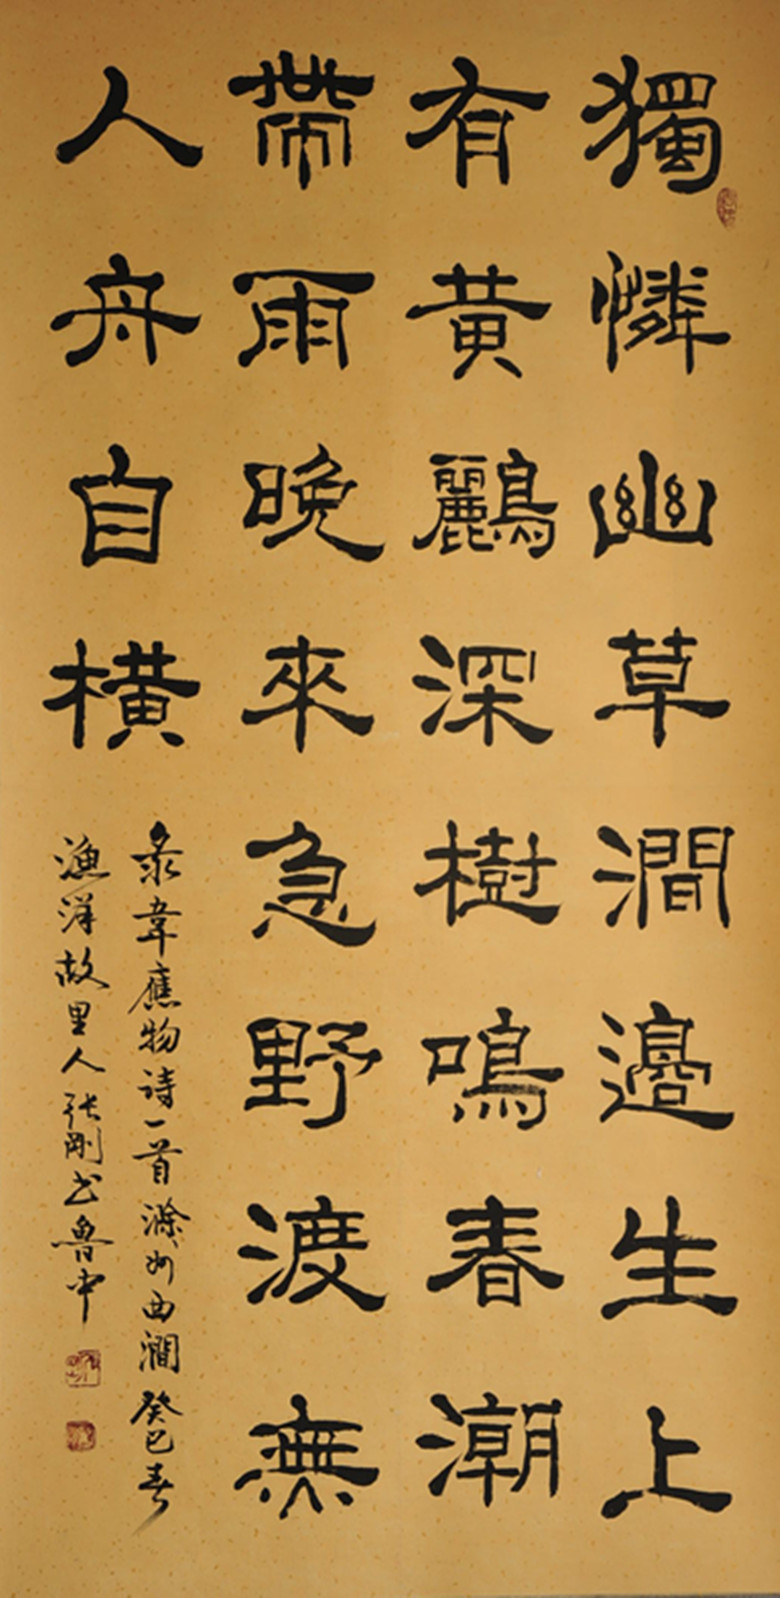 獨憐幽草澗邊生上
有黃鸝深樹鳴春潮
帶雨晚來急野渡無
人舟自橫
录韋應物诗一首滁州西澗癸巳春
漁洋故里人张刚书魯中